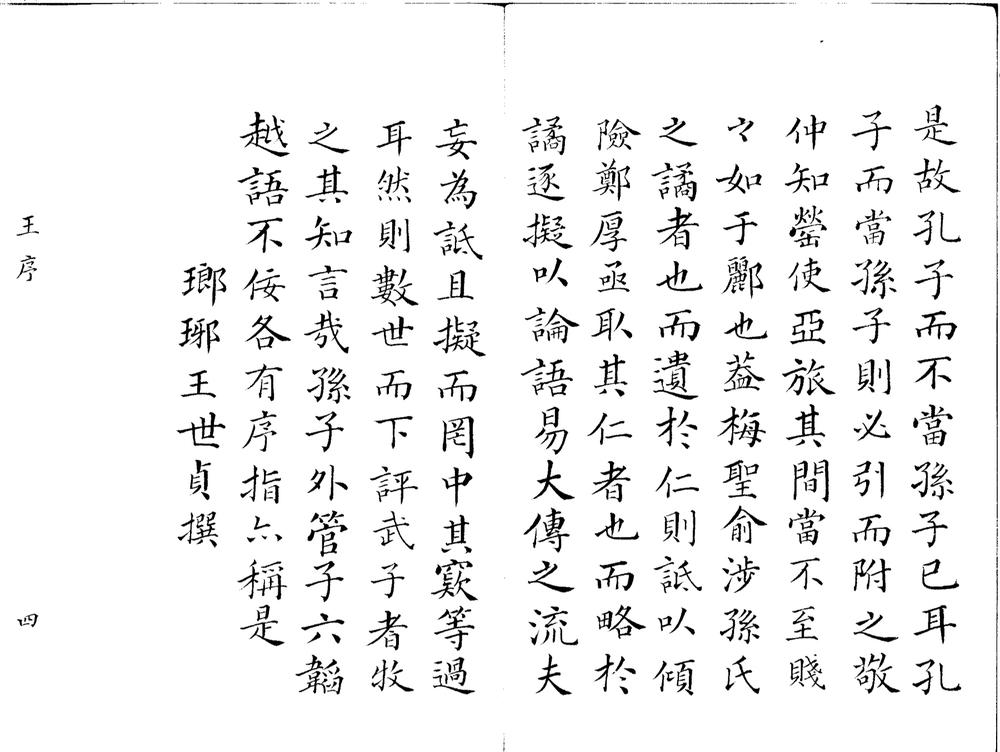 是故孔子而不當孫子已耳孔
子而當孫子則必引而附之敬
仲知罃使亞旅其間當不至賤
〻如于酈也葢梅聖俞涉孫氏
之譎者也而遺於仁則詆以傾
險鄭厚亟取其仁者也而略於
譎逐擬以論語易大傳之流夫
妄為詆且擬而罔中其窾等過
耳然則數世而下評武子者牧
之其知言哉孫子外管子六韜
越語不佞各有序指六稱是
瑯琊王世貞撰
王序
四